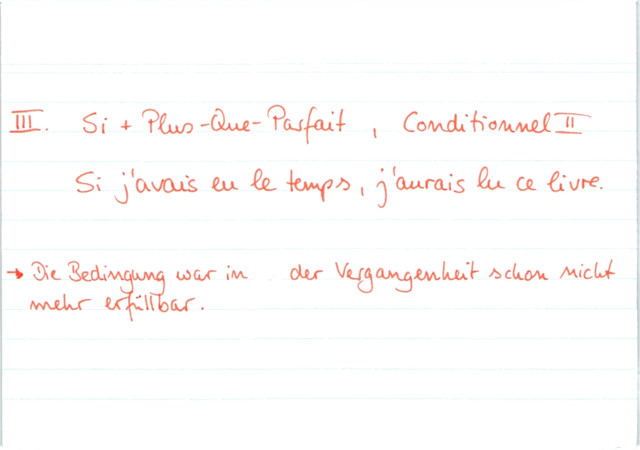 III. Si + Plus-Que-Parfait, Conditionnel II
Si j'avais eu le temps, j'aurais lu ce livre.
→ Die Bedingung war in der Vergangenheit schon nicht
mehr erfüllbar.